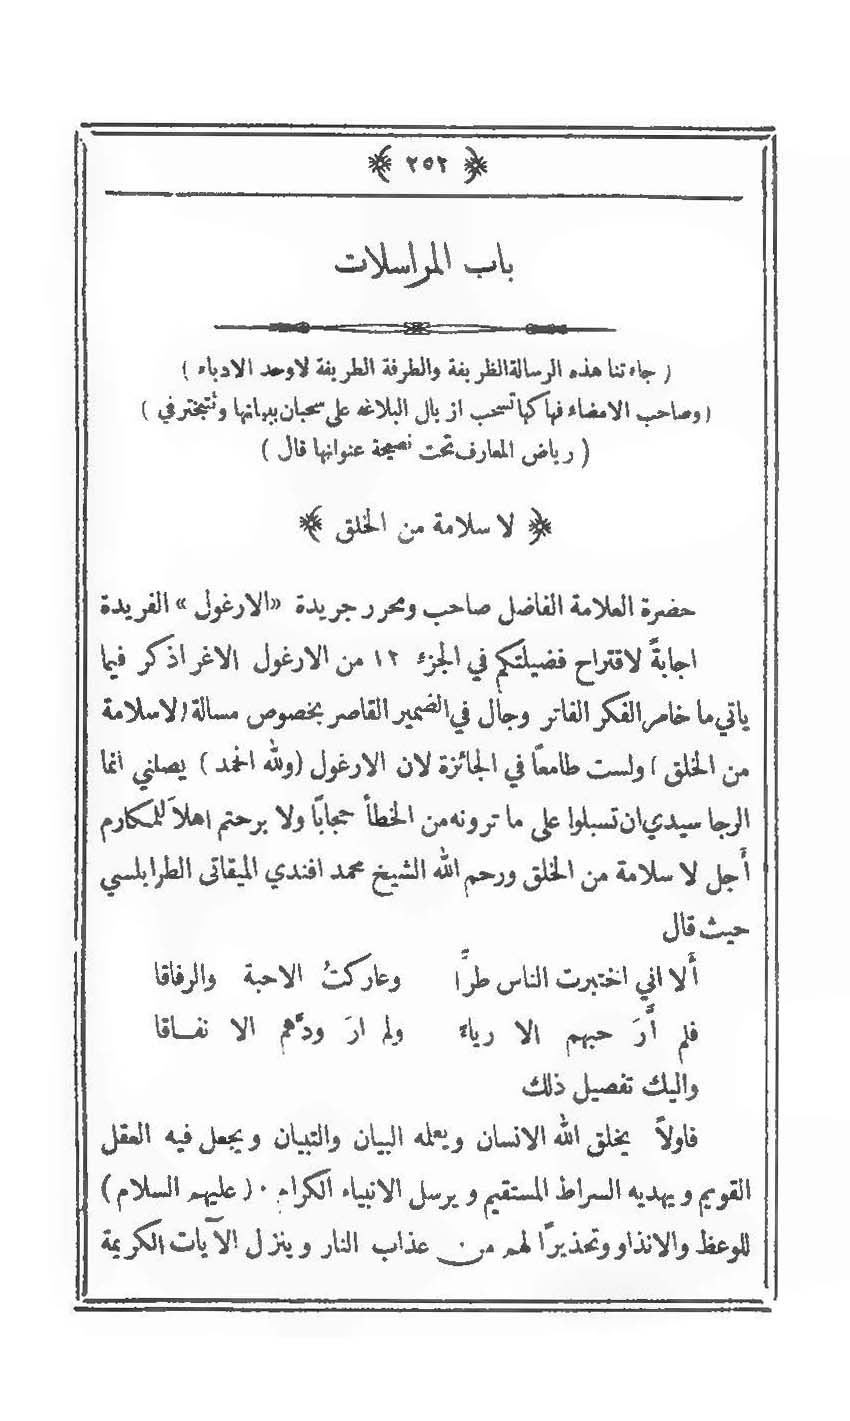 ﴿ ٢٥٢ ﴾
باب المراسلات
( جاءتنا هذه الرسالة الظريفة والطرفة الطريفة لاوحد الادباء )
( وصاحب الامضاء فهاكها تسحب ازيال البلاغه على سحبان ببيانها وتتبختر في )
( رياض المعارف تحت نصيحة عنوانها قال )
﴿ لا سلامة من الخلق ﴾
حضرة العلامة الفاضل صاحب ومحرر جريدة «الارغول» الفريدة
اجابةً لاقتراح فضيلتكم في الجزء ١٢ من الارغول الاغر اذكر فيما
ياتي ما خامر الفكر الفاتر وجال في الضمير القاصر بخصوص مسالة (لاسلامة
من الخلق ) ولست طامعًا في الجائزة لان الارغول (ولله الحمد ) يصلني انما
الرجا سيدي ان تسبلوا على ما ترونه من الخطأ حجابًا ولا برحتم اهلاً للمكارم
أجل لا سلامة من الخلق ورحم الله الشيخ محمد افندي الميقاتى الطرابلسي
حيث قال
ألا اني اختبرت الناس طرًّا وعاركتُ الاحبة والرفاقا
فلم أرَ حبهم الا رياء ولم ارَ ودَّهم الا نفاقا
واليك تفصيل ذلك
فاولاً يخلق الله الانسان ويعلمه البيان والتبيان ويجعل فيه العقل
القويم ويهديه السراط المستقيم ويرسل الانبياء الكرام ٠ ( عليهم السلام )
للوعظ والانذاو وتحذيرًا لهم من عذاب النار وينزل الآيات الكريمة